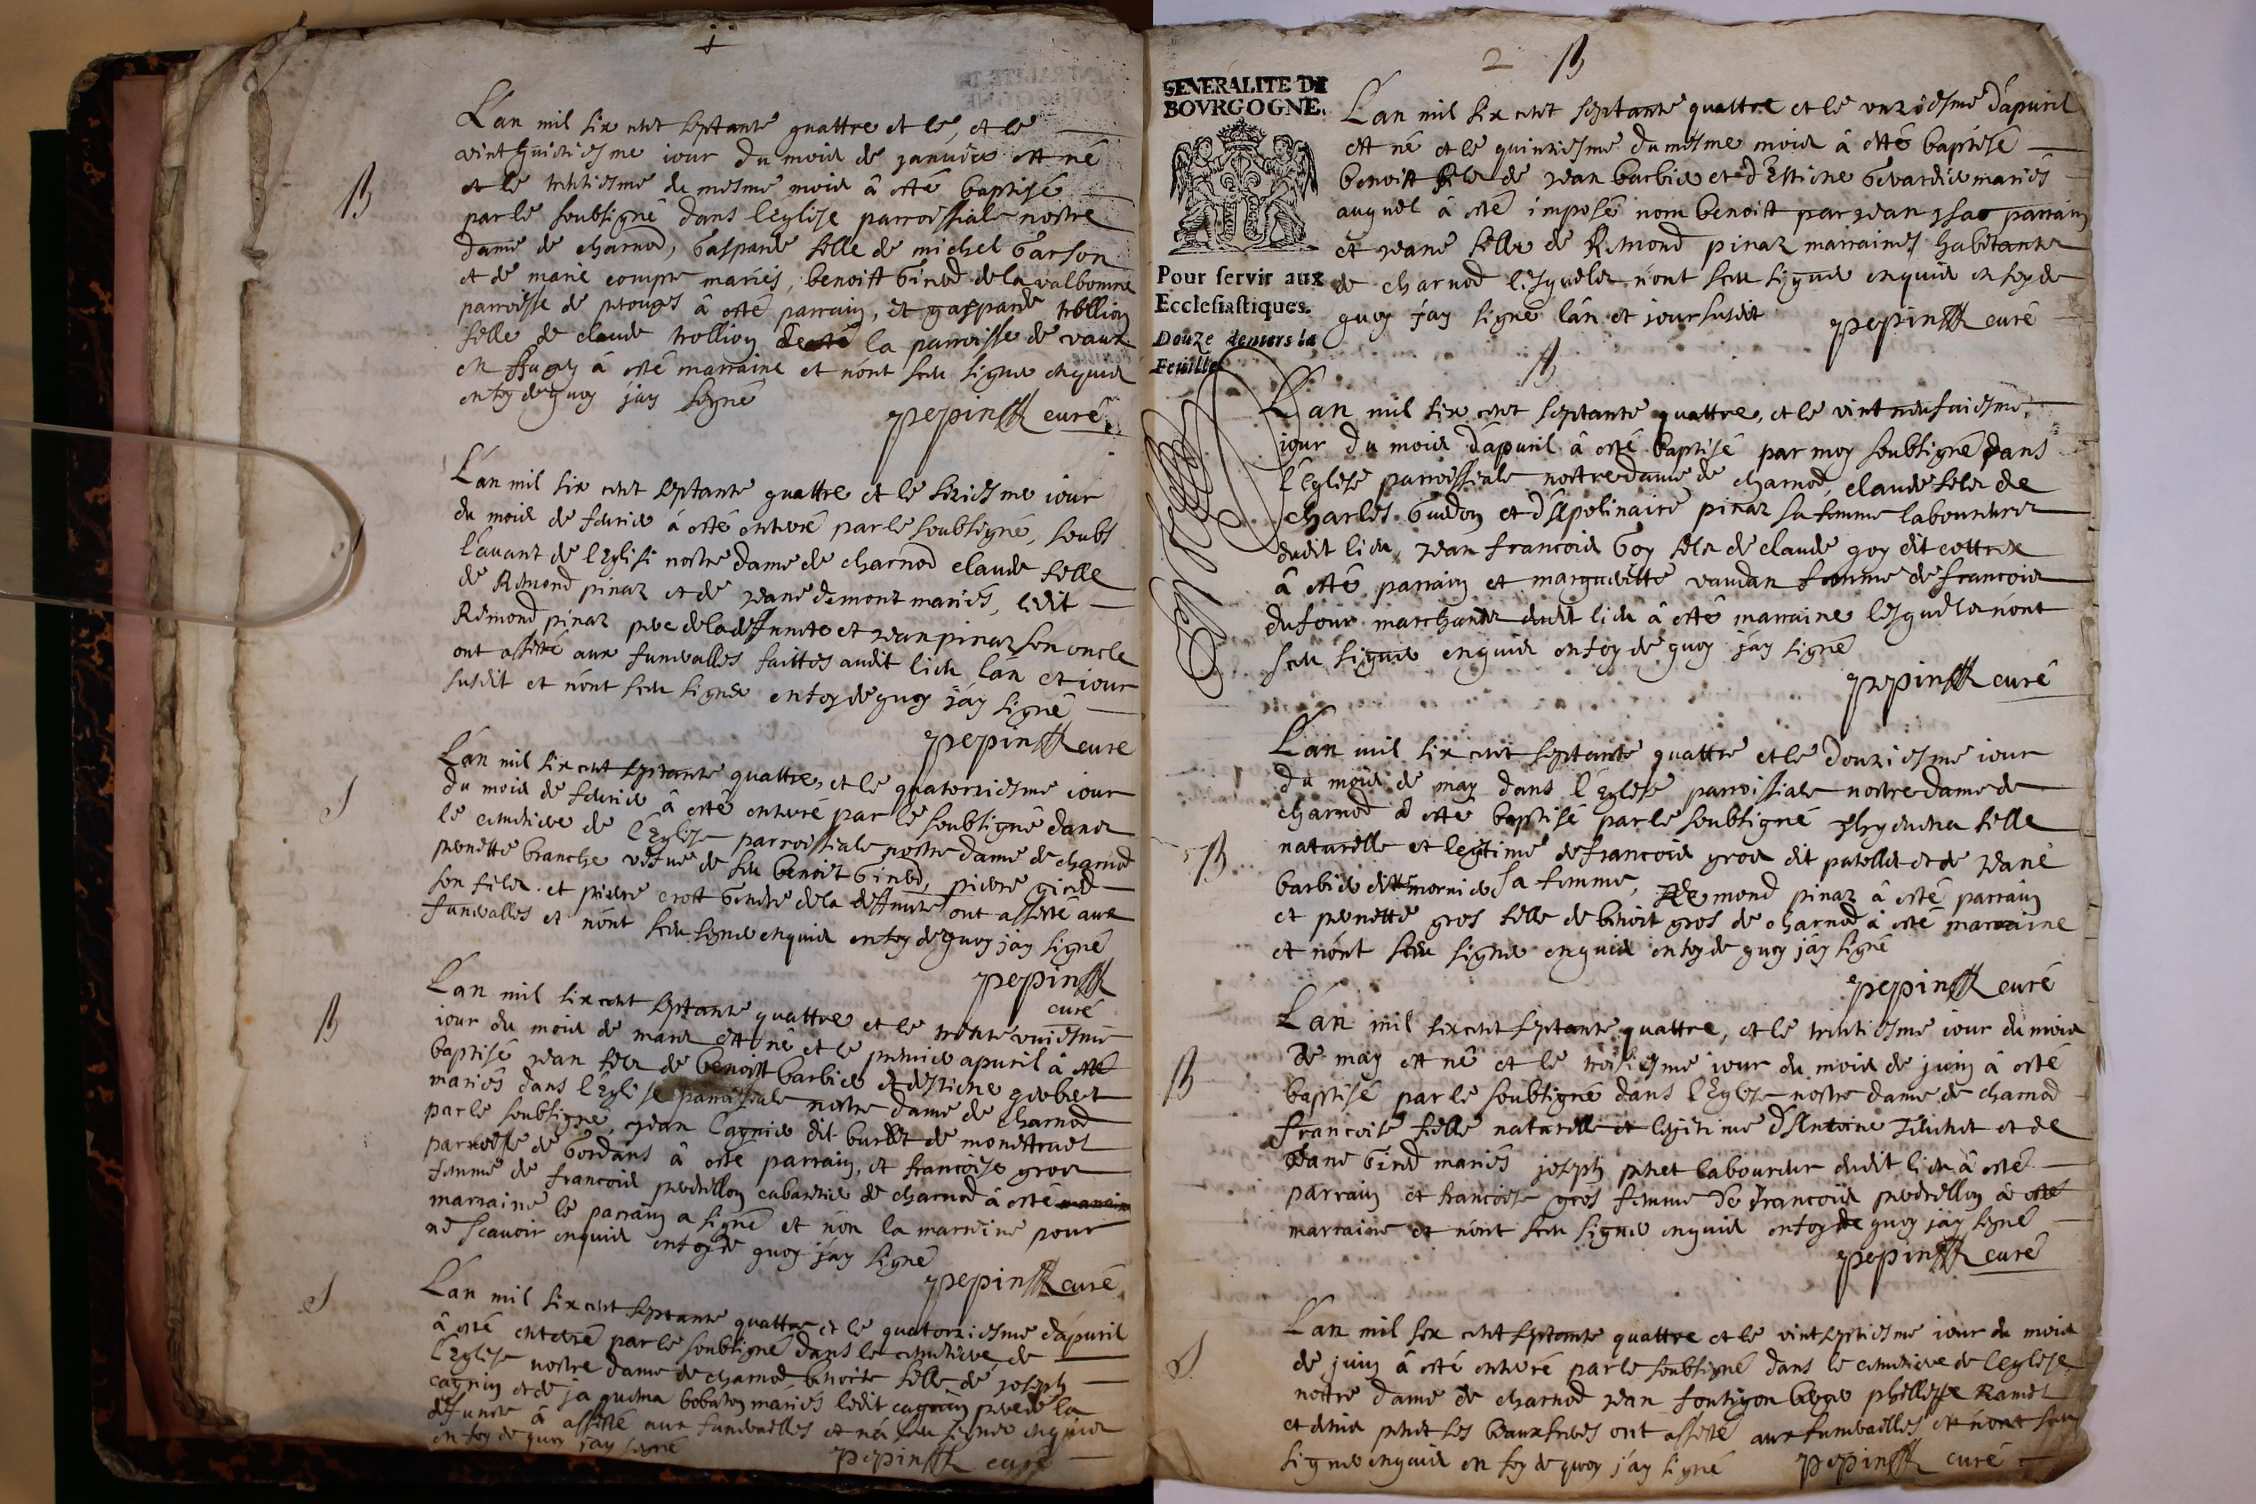 L'an mil six cent septante quattre et le, et le
vint huictiesme jour du mois de janvier est né
et le trentiesme du mesme mois â esté baptisé
par le soubsigné dans l'eglise parroissiale nostre
dame de charnod, Gasparde fille de michel Garson
et de marie compte mariés, benoist Girod de la valbonne
parroisse de perouges â esté parrain, et gasparde trollion
fille de claude trollion de la parroisse de vaux
en Bugey â esté marraine et n'ont sceu signer enquis
en foy de quoy j'ay signé
pepin curé
B
L'an mil six cent septante quattre et le sixiesme jour
du mois de febvrier â esté enterré par le soubsigné, soubs
l'avant de l'Eglise nostre dame de charnod claude fille
de Rémond pinaz et de jeane demont mariés, ledit
Rémond pinaz pere de la deffuncte et jean pinaz son oncle
ont assisté aux funerailles faittes audit lieu l'an et jour
susdit et n'ont sceu signer en foy de quoy j'ay signé
pepin curé
L'an mil six cent septante quattre, et le quatorziesme jour
du mois de febvrier â esté enterré par le soubsigné dans
le cimetiere de l'Eglise parroissiale nostre dame de charnod
pernette branche vefve de feu benoist Girod, pierre girod
son filz et pierre crost Gendre de la deffuncte ont assisté aux
funerailles et n'ont sceu signer enquis en foy de quoy j'ay signé
pepin
curé
S
L'an mil six cent septante quattre et le trente uniesme
jour du mois de mars est né et le premier apvril â esté
baptisé jean filz de benoist barbier et d'estiene
mariés dans l'Eglise parroissiale nostre dame de charnod
par le soubsigné, jean Cagnin dit burlet de
parroisse de Gordans â esté parrain, et françoise gros
femme de françois perdrillon cabaretier de charnod â esté
marraine le parrain a signé et non la marraine pour
ne scavoir enquis en foy de quoy j'ay signé
pepin curé
B
L'an mil six cent septante quattre et le quatorziesme d'apvril
â esté enterré par le soubsigné dans le cimetiere de
l'Eglise nostre dame de charnod benoite fille de joseph
cagnin et de jaquema mariés ledit cagnin pere de la
defuncte â assisté aux funerailles et n'a sceu signer enquis
en foy de quoy j'ay signé
pepin curé
S
2 B
GENERALITE DE
BOVRGOGNE.
Pour servir aux
Ecclesiastiques.
Douze deniers la
Feuille
L'an mil six cent septante quattre et le unziesme d'apvril
est né et le quinziesme du mesme mois â esté baptisé
benoist filz de jean barbier et d'Estiene Gerardier mariés
auquel â esté imposé nom benoist par jean parrain
et jeane fille de Rémond pinaz marraine, habitants
de charnod lesquelz n'ont sceu signer enquis en foy de
quoy j'ay signé l'an et jour susdit pepin curé
B
L'an mil six cent septante quattre, et le vint neufiesme
jour du mois d'apvril â esté baptisé par moy soubsigné dans
l'Eglise parroissiale nostre dame de charnod, claude filz de
charles Guidon et d'Apolinaire pinaz sa femme laboureurs
dudit lieu, jean françois Goy filz de claude goy dit
â esté parrain et marguerite vaudan femme de françois
dufour marchand dudit lieu â esté marraine lesquelz n'ont
sceu signer enquis en foy de quoy j'ay signé
pepin curé
L'an mil six cent septante quattre et le douziesme jour
du mois de may dans l'Eglise parroissiale nostre dame de
charnod â esté baptisé par le soubsigné fille
naturelle et legitime de françois gros dit patellet et de jeane
barbier sa femme, Rémond pinaz â esté parrain
et pernette gros fille de benoit gros de charnod â esté marraine
et n'ont sceu signer enquis en foy de quoy j'ay signé
pepin curé
B
L'an mil six cent septante quattre, et le trentiesme jour du mois
de may est né et le troisiesme jour du mois de juin â esté
baptisé par le soubsigné dans l'Eglise nostre dame de charnod
françoise fille naturelle et legitime d'Antoine et de
jeane Girod mariés joseph laboureur dudit lieu â esté
parrain et françoise gros femme de françois perdrillon â esté
marraine et n'ont sceu signer enquis en foy de quoy j'ay signé
pepin curé
B
L'an mil six cent septante quattre et le vint septiesme jour du mois
de juin â esté enterré par le soubsigné dans le cimetiere de l'eglise
nostre dame de charnod jean
et ses beaux freres ont assisté aux funerailles et n'ont sceu
signer enquis en foy de quoy j'ay signé pepin curé
S